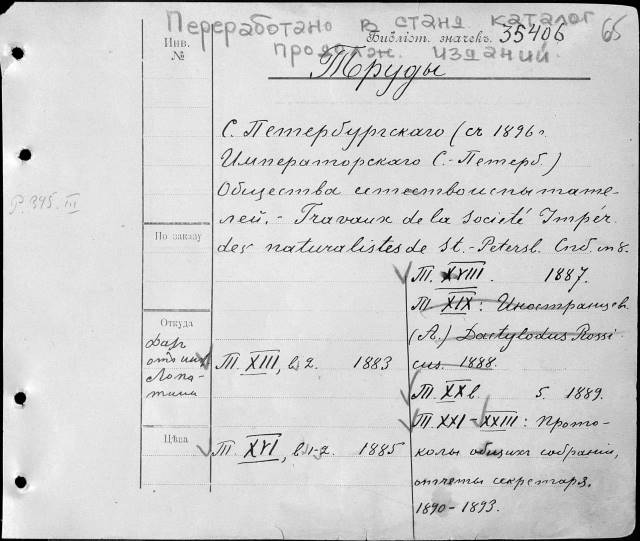 Переработано в стана каталог
продолж. изданий.
Инв.
№
Библіот. значекъ. 35406
65
Труды
С. Петербургскаго (съ 1896 г.
Императорскаго С.-Петерб.)
Общества естествоиспытате-
лей. - Travaux de la Société Impér.
des naturalistes de St.-Petersb. Спб. in 8.
P. 345. III
По заказу
Откуда
Даръ
отъ
Лопа-
тина
Цѣна
Т. XIII, в. 2. 1883
Т. XVI, в. 1-2. 1885
Т. XVIII. 1887.
Т. XIX: Иностранцевъ
(А.) Dactylodus Rossi
cus. 1888.
Т. XX в. 5. 1889.
Т. XXI - XXIII: Прото-
колы общихъ собраній,
отчеты секретаря.
1890-1893.